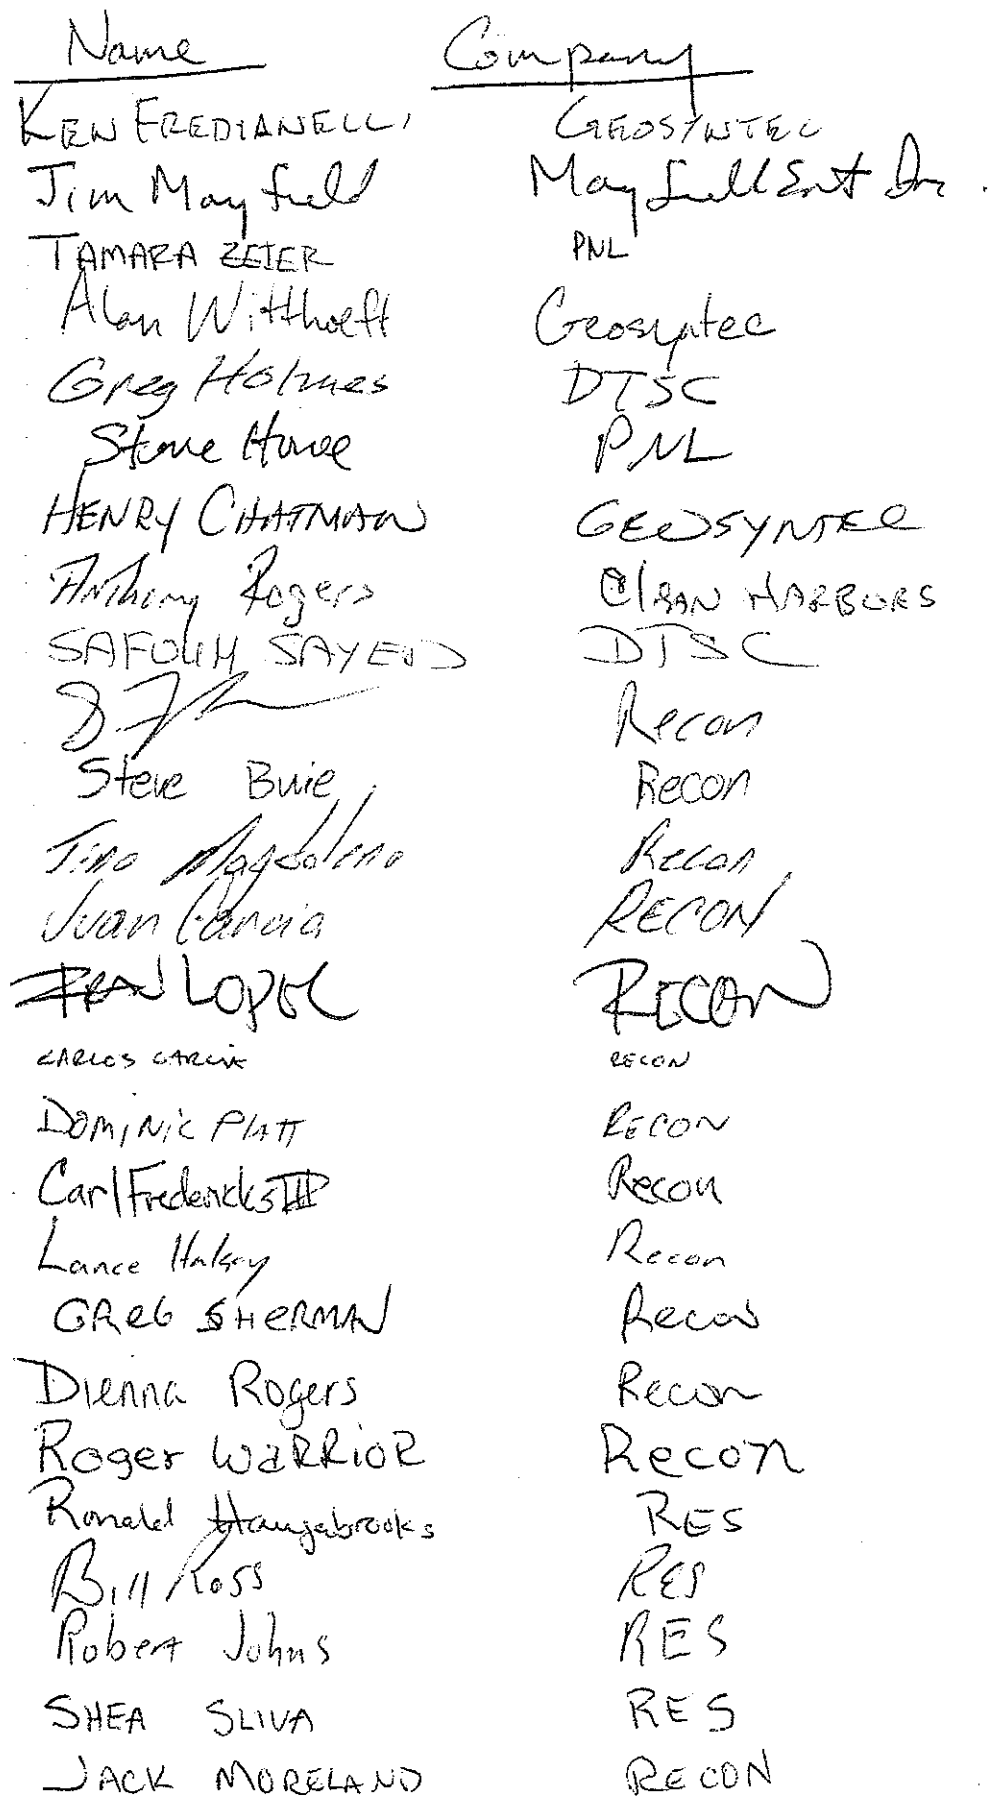 Name Company
KEN FREDIANELLI GEOSYNTEC
Jim Mayfield Mayfield Ent Inc.
TAMARA ZEIER PNL
Alan Witthoeft Geosyntec
Greg Holmes DTSC
Steve Howe PNL
HENRY CHATMAN GEOSYNTEC
Anthony Rogers Clean HARBORS
SAFOUH SAYED DTSC
Recon
Steve Buie Recon
Tino Magdaleno Recon
Juan Garcia RECON
FRAN LOPEZ RECON
CARLOS GARCIA RECON
DOMINIC PLATT RECON
Carl Fredericks III Recon
Lance Halsey Recon
GREG SHERMAN Recon
Dienna Rogers Recon
Roger WARRIOR Recon
Ronald Haugabrooks RES
Bill Ross RES
Robert Johns RES
SHEA SLIVA RES
JACK MORELAND RECON